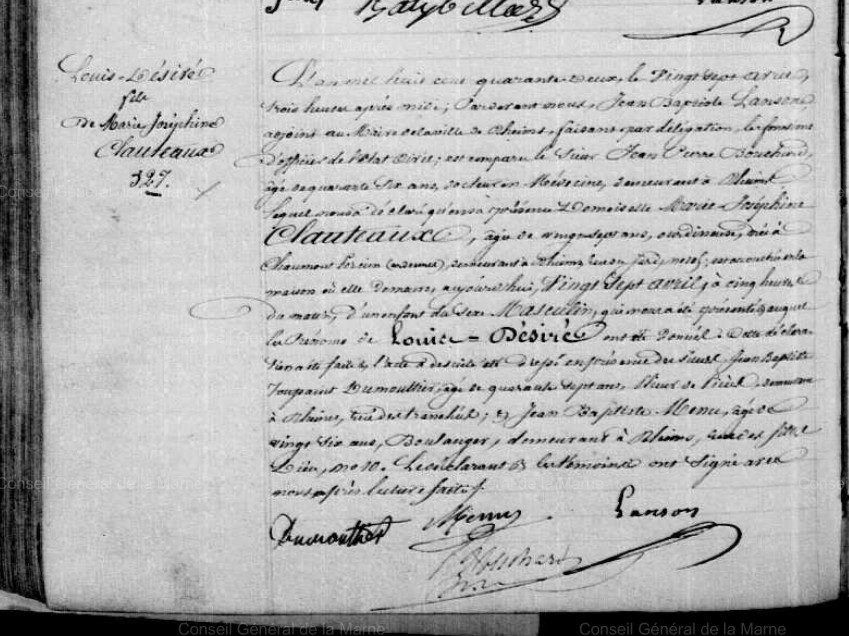 Lanson
Louis-Désiré
fils
de Marie Joséphine
Clauteaux
327.
L'an mil huit cent quarante deux, le Vingt sept avril,
trois heures après midi; Pardevant nous, Jean Baptiste Lanson
adjoint au Maire de la ville de Rheims, faisant par délégation, les fonctions
d'officier de l'Etat Civil; est comparu le Sieur Jean Pierre Bouchard,
âgé de quarante six ans, docteur en Médecine, demeurant à Rheims
lequel nous a déclaré qu'en sa présence Demoiselle Marie Joséphine
Clauteaux, âgée de vingt sept ans, ourdineuse, née à
Chaumont Porcien (ardennes), demeurant à Rheims rue du Jard, est accouchée en la
maison où elle demeure, aujourd'hui, Vingt Sept avril, à cinq heures
du matin, d'un enfant du sexe Masculin, qui nous a été présenté & auquel
les Prénoms de Louis-Désiré ont été donnés. Cette déclara-
tion a été faite & l'acte a de suite été dressé en présence des Sieurs Jean Baptiste
Toussaint Dumoultier, âgé de quarante sept ans, demeurant
à Rheims, rue des tranchées; & Jean Baptiste Menu, âgé de
vingt Six ans, Boulanger, demeurant à Rheims,
Dieu, no 10. Le déclarant & les témoins ont Signé avec
nous après lecture faite.
Menu Lanson
Bouchard
Conseil Général de la Marne Conseil Général de la Marne